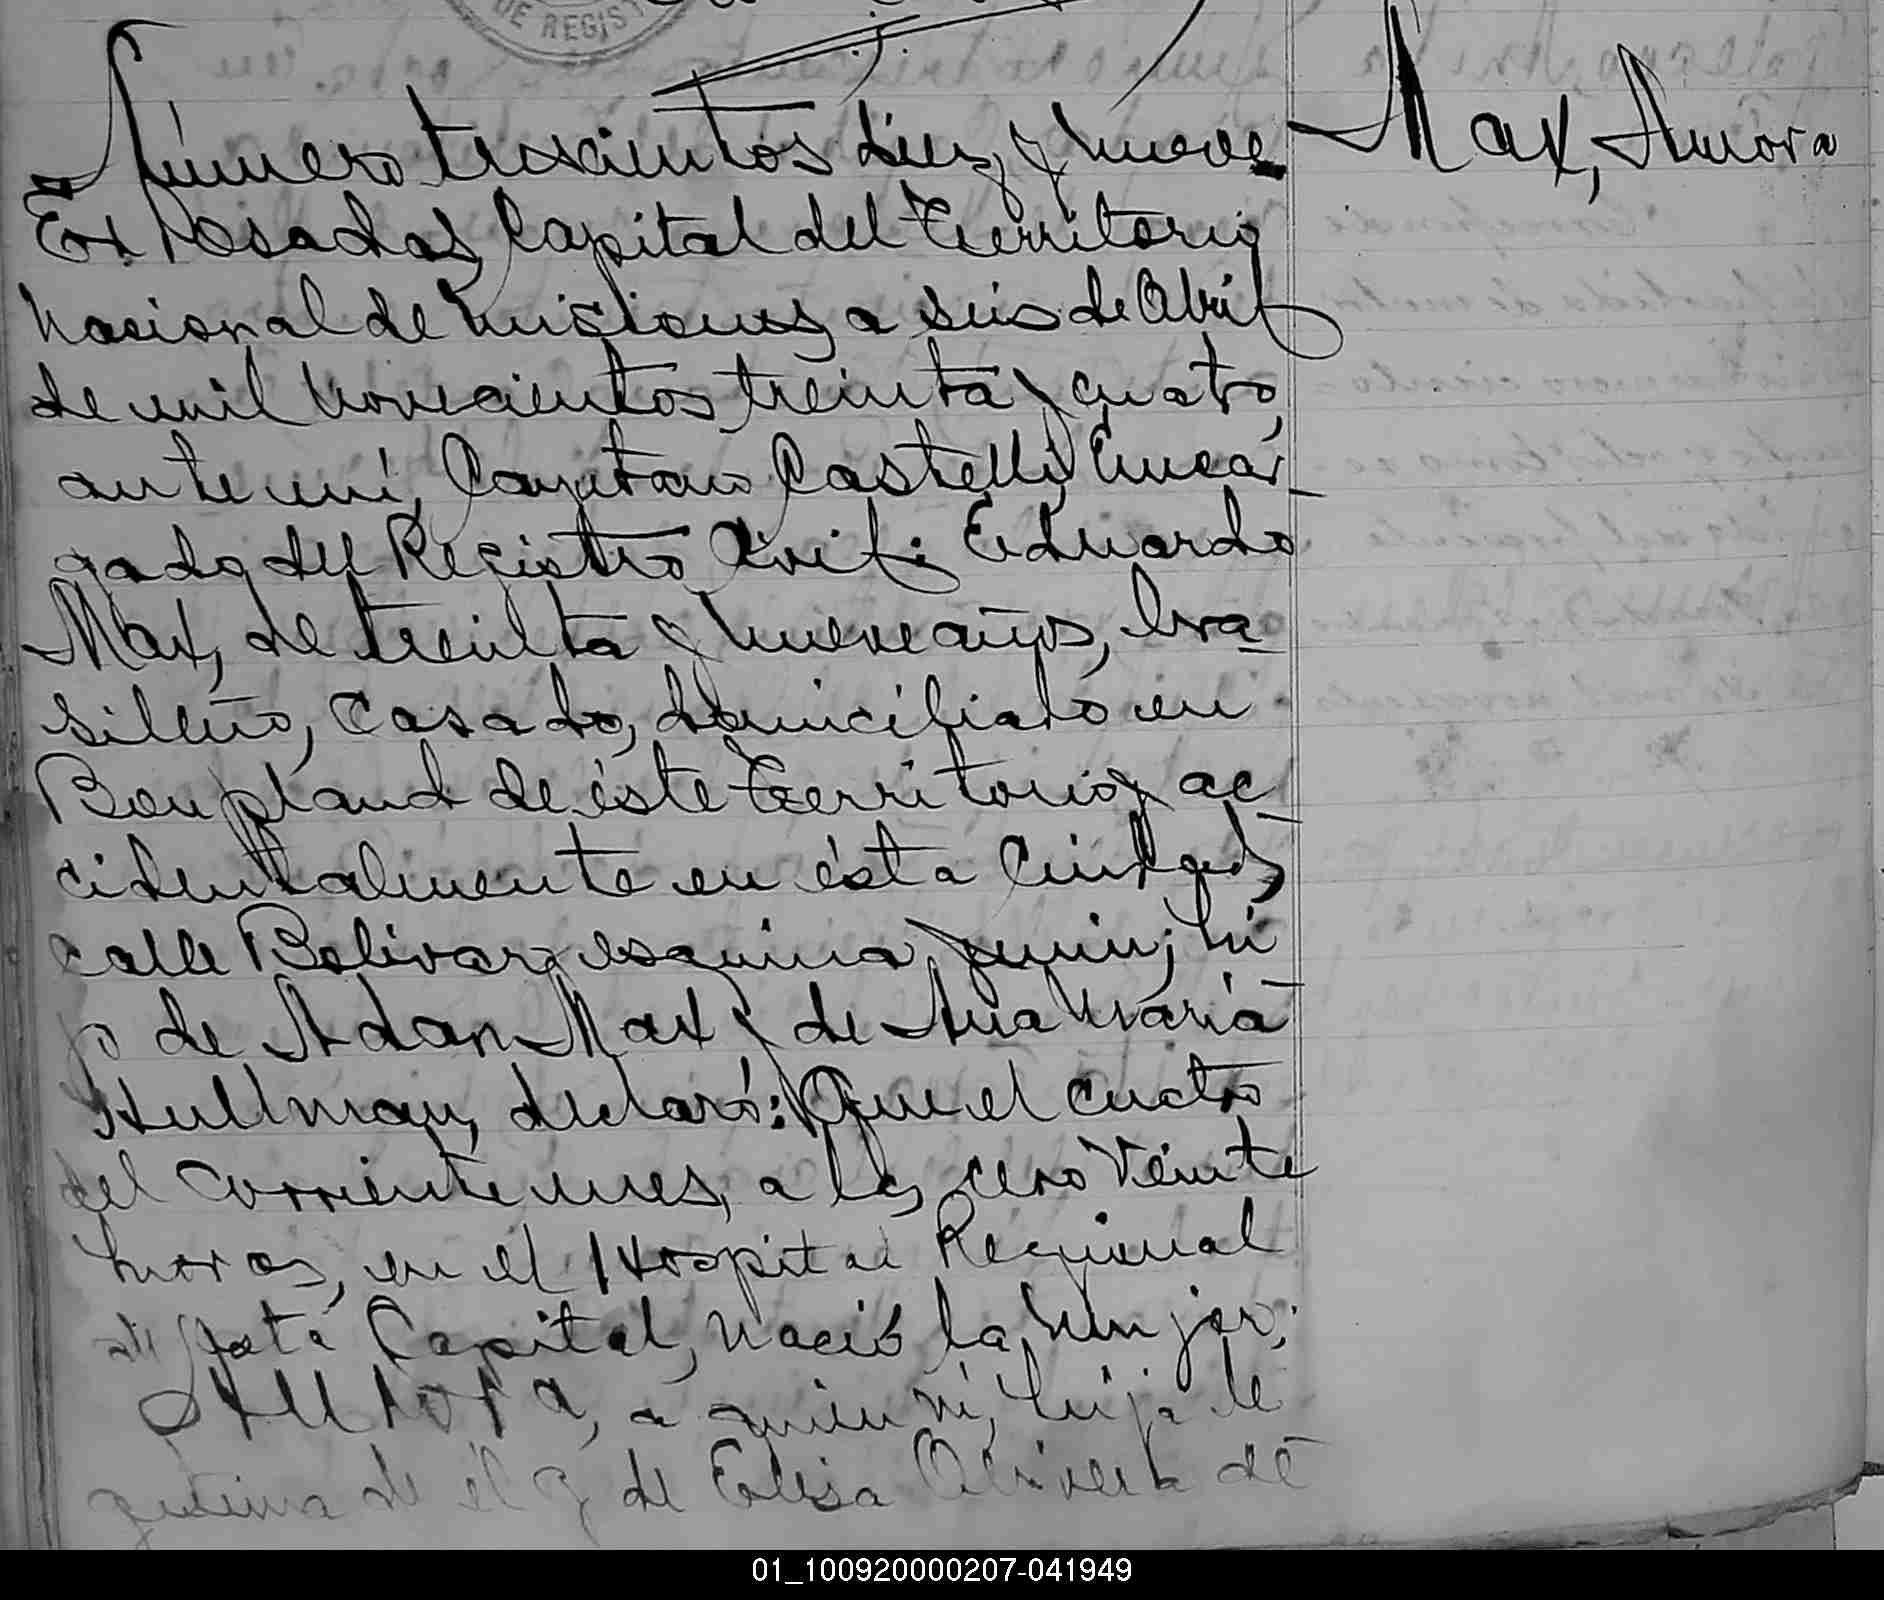 DE REGIST
Número trescientos diez y nueve
Max, Aurora
En Posadas, Capital del Territorio
Nacional de Misiones, a seis de Abril
de mil novecientos treinta y cuatro,
ante mí, Cayetano Castelli, Encar-
gado del Registro Civil; Eduardo
Max, de treinta y nueve años, bra-
sileño, casado, domiciliado en
Bonpland de éste Territorio y ac-
cidentalmente en ésta Ciudad,
calle Bolivar esquina Junin; hi-
jo de Adan Max y de Ana Maria
Hullman, declaró: Que el cuatro
del corriente mes, a las cero veinte
horas, en el Hospital Regional
de esta Capital, nació la mujer:
Aurora, a quien ví, hija le-
gitima de él y de Elisa Olivera de
01_100920000207-041949